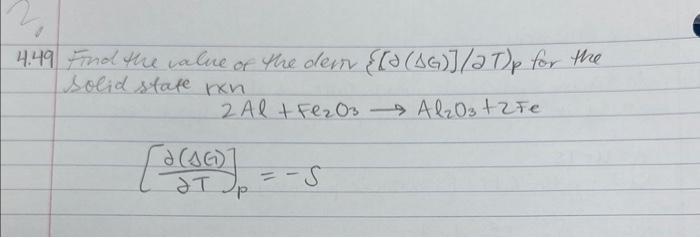 4.49 Find the value of the deriv {[∂(ΔG)]/∂T)p for the
solid state rxn
2Al + Fe2O3 → Al2O3 + 2Fe
[∂(ΔG)/∂T]p = -S